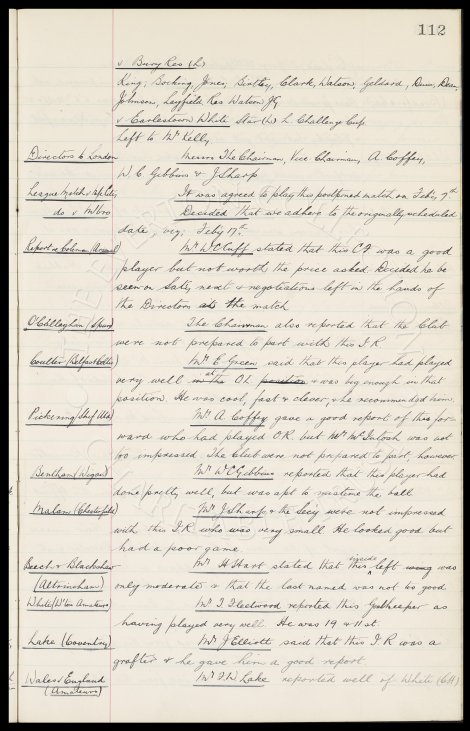 112
v Bury Res (h)
King, Bocking, Jones, Bentley, Clark, Watson, Geldard, Dunn, Dean,
Johnson, Leyfield. Res Watson JG
v Earlestown White Star (h) L. Challenge Cup
Left to Mr Kelly
Directors to London Messrs The Chairman, Vice Chairman, A. Coffey,
W. C. Gibbins & J. Sharp
League Match v It was agreed to play this postponed match on Feby 7th
do v Decided that we adhere to the originally scheduled
date, viz; Feby 17th.
Report re Coleman (Arsenal) Mr W C Cuff stated that this C.F. was a good
player but not worth the price asked. Decided he be
seen on Saty next & negotiations left in the hands of
the Directors at the match
O'Callaghan (Spurs) The Chairman also reported that the Club
were not prepared to part with this I.R
Coulter (Belfast Celtic) Mr E Green said that this player had played
very well at O L position & was big enough in that
position. He was cool, fast & clever & he recommended him.
Pickering (Shef Utd) Mr A. Coffey gave a good report of this for-
ward who had played O.R. but Mr McIntosh was not
so impressed. The Club were not prepared to part, however.
Bentham (Wigan) Mr W C Gibbins reported that this player had
done pretty well, but was apt to mistime the ball
Malam (Chesterfield) Mr J. Sharp & the Secy were not impressed
with this I.R who was very small. He looked good but
had a poor game.
Beech & Blackshaw Mr H Hart stated that this inside left was
(Altrincham) only moderate & that the last named was not so good
White (W'ton Amateurs) Mr T Fleetwood reported this Goalkeeper as
having played very well. He was 19 & 11 st.
Lake (Coventry) Mr J Elliott said that this I.R was a
grafter & he gave him a good report.
Wales v England Mr F.W Lake reported well of White (CH)
(Amateurs)